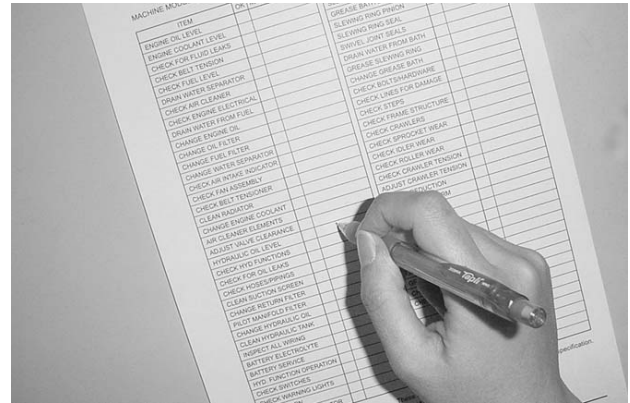 MACHINE MODE
ITEM
OK
ENGINE OIL LEVEL
ENGINE COOLANT LEVEL
CHECK FOR FLUID LEAKS
CHECK BELT TENSION
CHECK FUEL LEVEL
DRAIN WATER SEPARATOR
CHECK AIR CLEANER
CHECK ENGINE ELECTRICAL
DRAIN WATER FROM FUEL
CHANGE ENGINE OIL
CHANGE OIL FILTER
CHANGE FUEL FILTER
CHANGE WATER SEPARATOR
CHECK AIR INTAKE INDICATOR
CHECK FAN ASSEMBLY
CHECK BELT TENSIONER
CLEAN RADIATOR
CHANGE ENGINE COOLANT
AIR CLEANER ELEMENTS
ADJUST VALVE CLEARANCE
HYDRAULIC OIL LEVEL
CHECK HYD FUNCTIONS
CHECK FOR OIL LEAKS
CHECK HOSES/PIPINGS
CLEAN SUCTION SCREEN
CHANGE RETURN FILTER
PILOT MANIFOLD FILTER
CHANGE HYDRAULIC OIL
CLEAN HYDRAULIC TANK
INSPECT ALL WIRING
BATTERY ELECTROLYTE
BATTERY SERVICE
HYD. FUNCTION OPERATION
CHECK SWITCHES
CHECK WARNING LIGHTS
GREASE BATH
SLEWING RING PINION
SLEWING RING SEAL
SWIVEL JOINT SEALS
DRAIN WATER FROM BATH
GREASE SLEWING RING
CHANGE GREASE BATH
CHECK BOLTS/HARDWARE
CHECK LINES FOR DAMAGE
CHECK STEPS
CHECK FRAME STRUCTURE
CHECK CRAWLERS
CHECK SPROCKET WEAR
CHECK IDLER WEAR
CHECK ROLLER WEAR
CHECK CRAWLER TENSION
ADJUST CRAWLER TENSION
DUCTION
These
pecification.